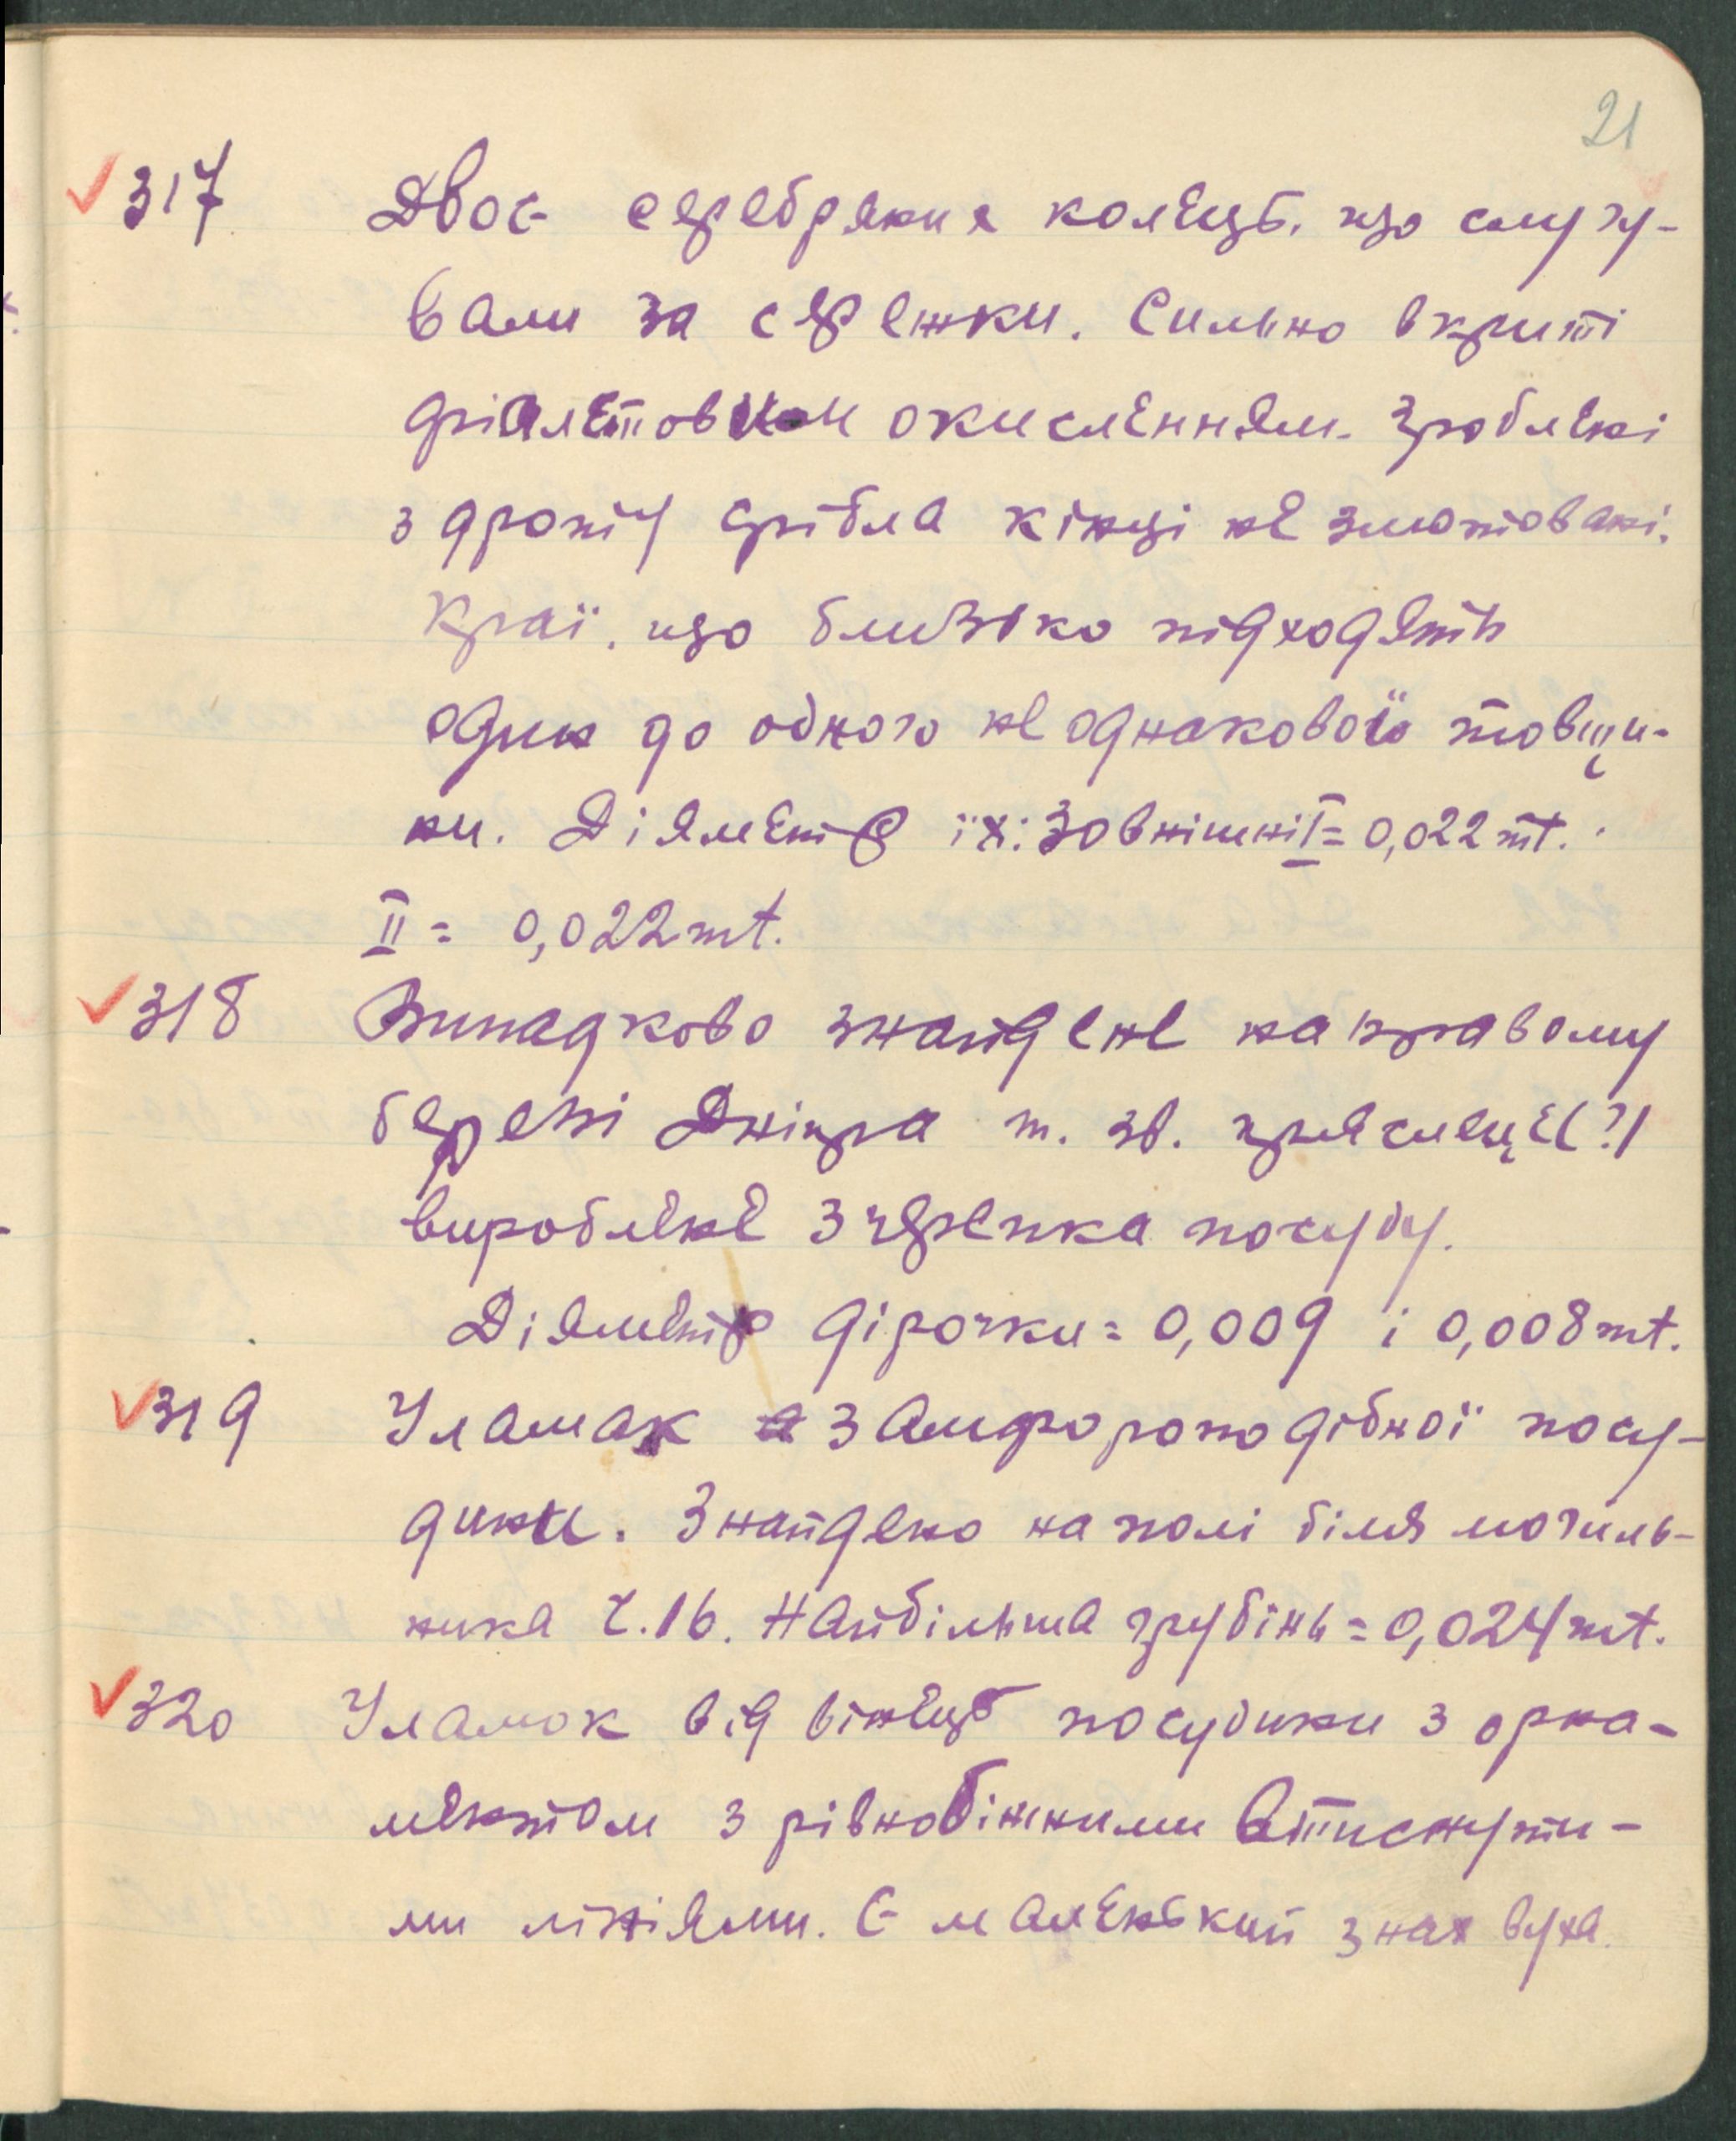 21
317 Двоє серебряних колець, що слугу-
вали за сережки. Сильно вкриті
фіялетовим окисленням. Зроблені
з дроту срібла кінці не злютовані.
Краї, що близько підходять
один до одного не однакової товщи-
ни. Діяметр їх: Зовнішні I = 0,022 mt.
II = 0,022 mt.
318 Випадково знайдене на правому
березі Дніпра т. зв. пряслице (?)
вироблене з черепка посуду.
Діяметр дірочки = 0,009 і 0,008 mt.
319 Уламак з амфороподібної посу-
дини. Знайдено на полі біля могиль-
ника ч. 16. Найбільша грубінь = 0,024 mt.
320 Уламок від вінець посудини з орна-
ментом з рівнобіжними втиснути-
ми лініями. Є маленький знак вуха.